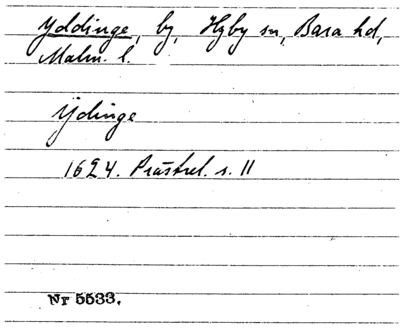 Yddinge, by, Hyby sn, Bara hd,
Malm. l.
Ydinge
1624. Prästrel. s. 11
Nr 5533.